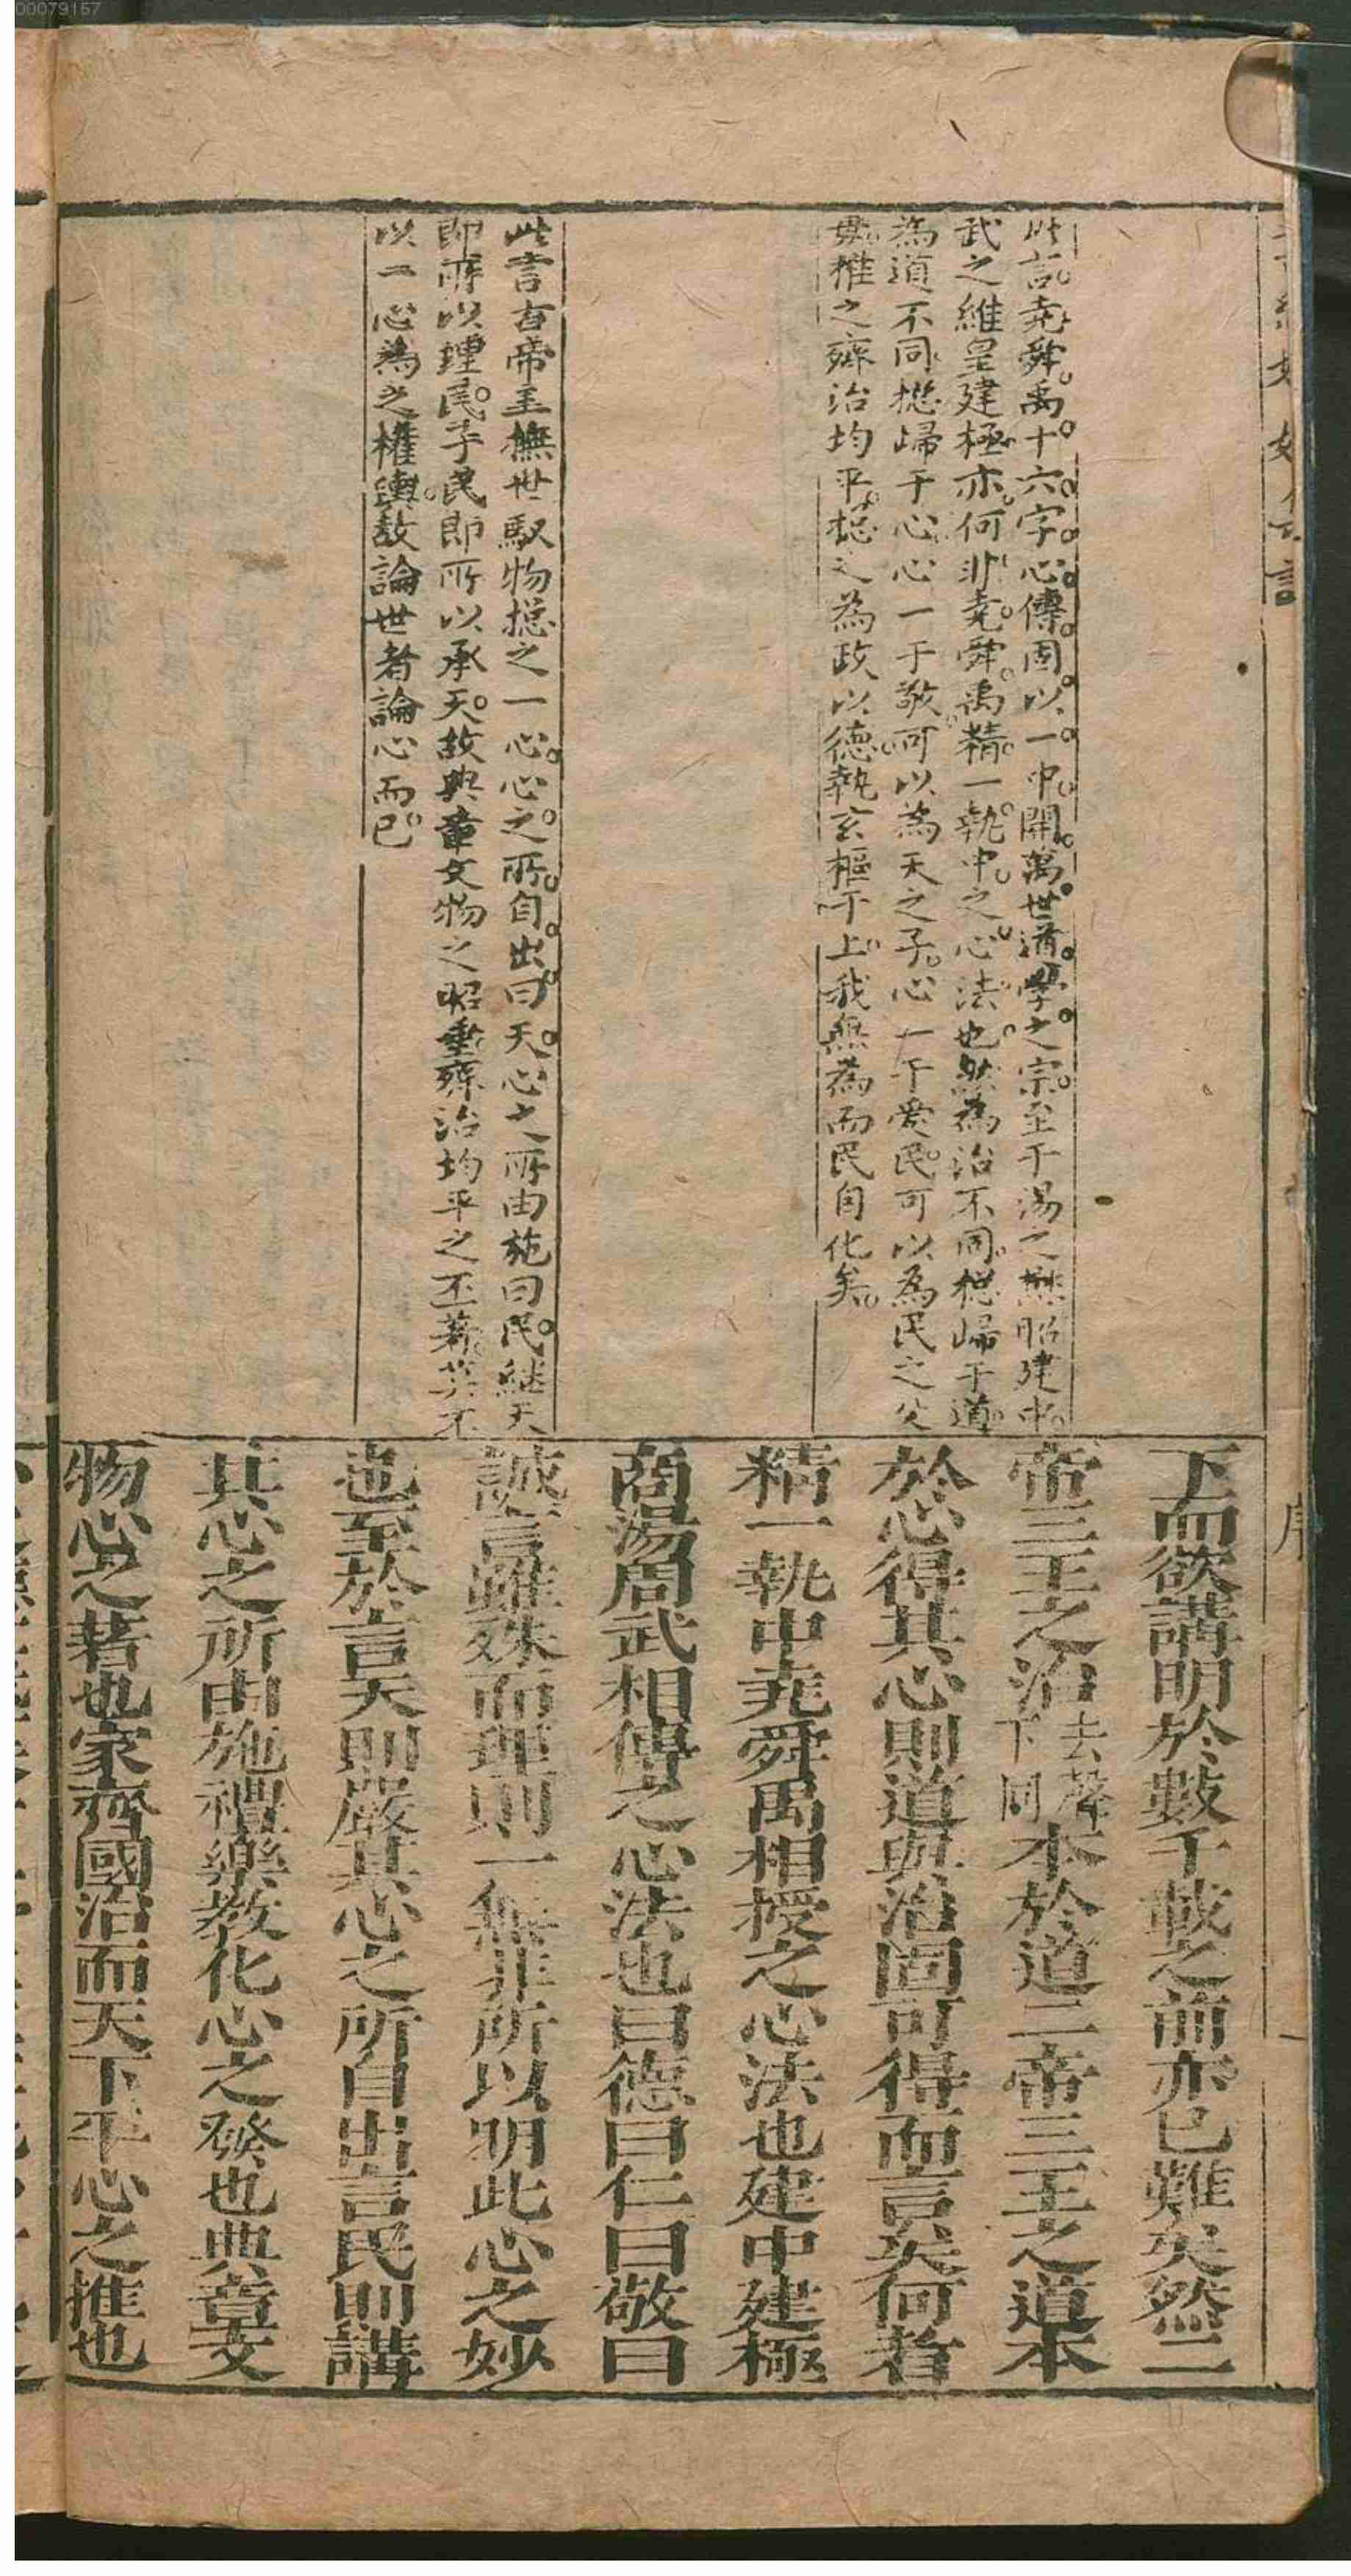 00079157
此記堯舜禹十六字心傳固以一中開萬世道學之宗至于湯之懋昭建中
武之維皇建極亦何非堯舜禹精一執中之心法也然為治不同總歸于道
為道不同揔歸于心心一于敬可以為天之子心一于愛民可以為民之父
母推之齊治均平揔之為政以德執玄樞于上我無為而民自化矣
此言古帝王撫世馭物揔之一心心之所自出曰天心之所由施曰民継天
即所以理民子民即所以承天故典章文物之昭垂齊治均平之丕著莫不
以一心為之權輿故論世者論心而已
下而欲講明於數千載之前亦已難矣然二
帝三王之治去聲下同本於道二帝三王之道本
於心得其心則道與治固可得而言矣何者
精一執中堯舜禹相授之心法也建中建極
商湯周武相傳之心法也曰德曰仁曰敬曰
誠言雖殊而理則一無非所以明此心之妙
也至於言天則嚴其心之所自出言民則謹
其心之所由施禮樂教化心之發也典章文
物心之著也家齊國治而天下平心之推也
序